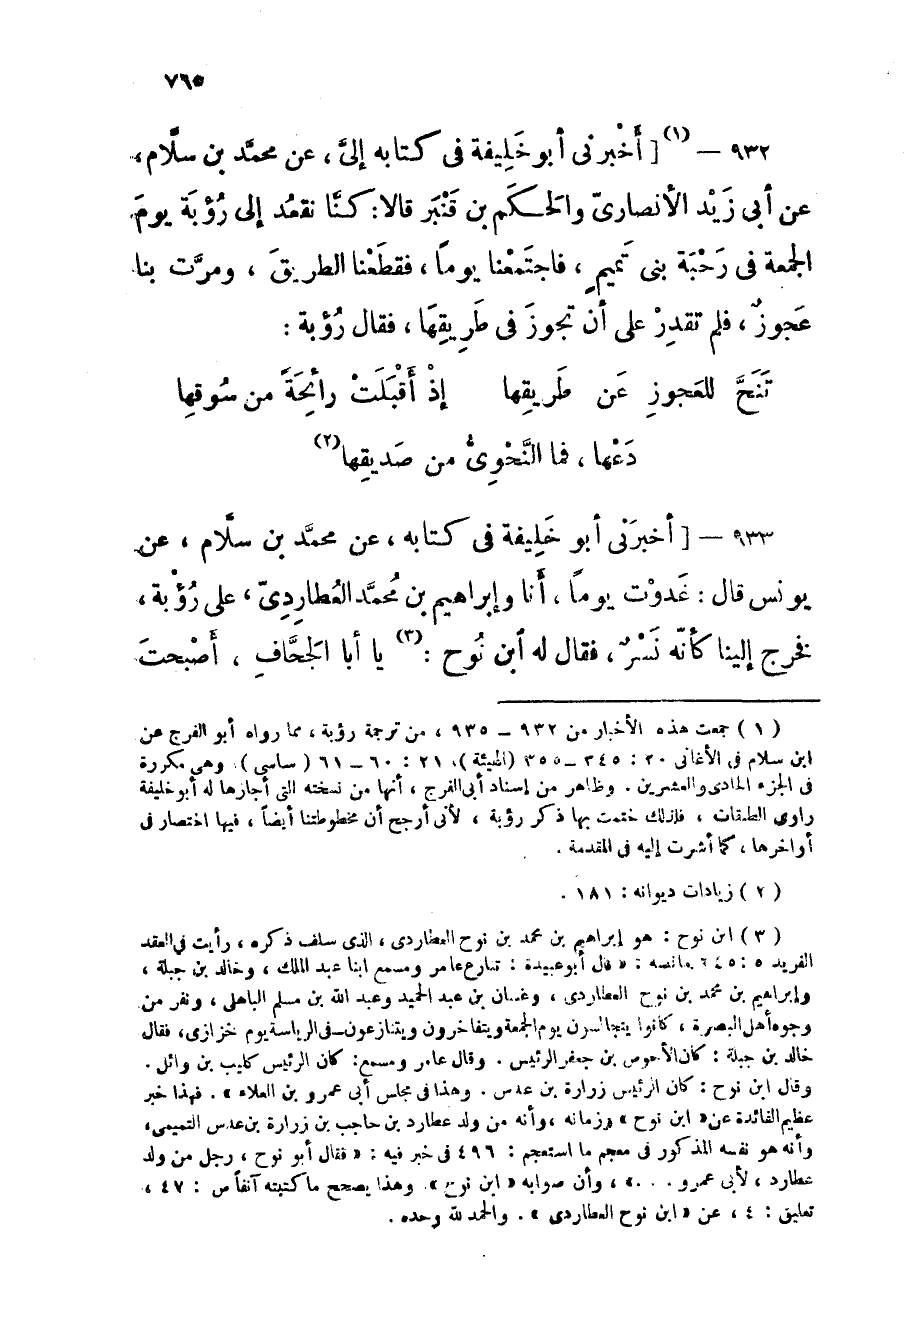 ٧٦٥
٩٣٢ – (١) [ أَخْبرنى أبو خَلِيفة فى كتابه إلىَّ ، عن محمَّد بن سلَّام ،
عن أبى زَيْد الأنصارىّ والحَكَم بن قَنْبَر قالا : كنَّا نقعُد إلى رُؤْبَة يومَ
الجمعة فى رَحْبَة بنى تميمٍ ، فاجتَمعْنا يوماً ، فقطَعْنا الطريقَ ، ومرَّت بنا
عَجوزٌ ، فلم تقدِرْ على أن تجوزَ فى طَرِيقِهَا ، فقال رُؤبة :
تَنَحَّ للعَجوزِ عَن طَرِيقِها إذْ أَقْبَلَتْ رائِحَةً من سُوقِها
دَعْها ، فما النَّحْوِىُّ من صَديقِها (٢)
٩٣٣ – [ أخبرَنى أبو خَلِيفة فى كتابه ، عن محمَّد بن سلَّام ، عن
يونس قال : غَدوْت يوماً ، أَنا وإبراهيم بن مُحمَّد العُطارِدِىّ ، على رُؤْبة ،
فخرج إلينا كأنّه نَسْرٌ ، فقال له ابن نُوح : (٣) يا أبا الجَحَّافِ ، أَصْبحتَ
( ١ ) جمعت هذه الأخبار من ٩٣٢ – ٩٣٥ ، من ترجمة رؤبة ، مما رواه أبو الفرج عن
ابن سلام فى الأغانى ٢٠ : ٣٤٥ – ٣٥٥ ( الهيئة ) ، ٢١ : ٦٠ – ٦١ ( ساسى ) ، وهى مكررة
فى الجزء الحادى والعشرين . وظاهر من إسناد أبى الفرج ، أنها من نسخته التى أجازها له أبو خليفة
راوى الطبقات ، فلذلك ختمت بها ذكر رؤبة ، لأنى أرجح أن مخطوطتنا أيضاً ، فيها اختصار فى
أواخرها ، كما أشرت إليه فى المقدمة .
( ٢ ) زيادات ديوانه : ١٨١ .
( ٣ ) ابن نوح : هو إبراهيم بن محمد بن نوح العطاردى ، الذى سلف ذكره ، رأيت فى العقد
الفريد ٥ : ٢٤٥ مانسه : « قال أبو عبيدة : تنازع عامر ومسمع ابنا عبد الملك ، وخالد بن جبلة ،
وإبراهيم بن محمد بن نوح العطاردى ، وغسان بن عبد الحميد وعبد الله بن مسلم الباهلى ، ونفر من
وجوه أهل البصرة ، كانوا يتجالسون يوم الجمعة ويتفاخرون ويتنازعون فى الرياسة يوم خزازى ، فقال
خالد بن جبلة : كان الأحوص بن جعفر الرئيس . وقال عامر ومسمع : كان الرئيس كليب بن وائل .
وقال ابن نوح : كان الرئيس زرارة بن عدس . وهذا فى مجلس أبى عمرو بن العلاء » . فهذا خبر
عظيم الفائدة عن « ابن نوح » وزمانه ، وأنه من ولد عطارد بن حاجب بن زرارة بن عدس التميمى ،
وأنه هو نفسه المذكور فى معجم ما استعجم : ٤٩٦ فى خبر فيه : « فقال أبو نوح ، رجل من ولد
عطارد ، لأبى عمرو . . . » ، وأن صوابه « ابن نوح » . وهذا يصحح ما كتبته آنفاً ص : ٤٧ ،
تعليق : ٤ ، عن « ابن نوح العطاردى » . والحمد لله وحده .